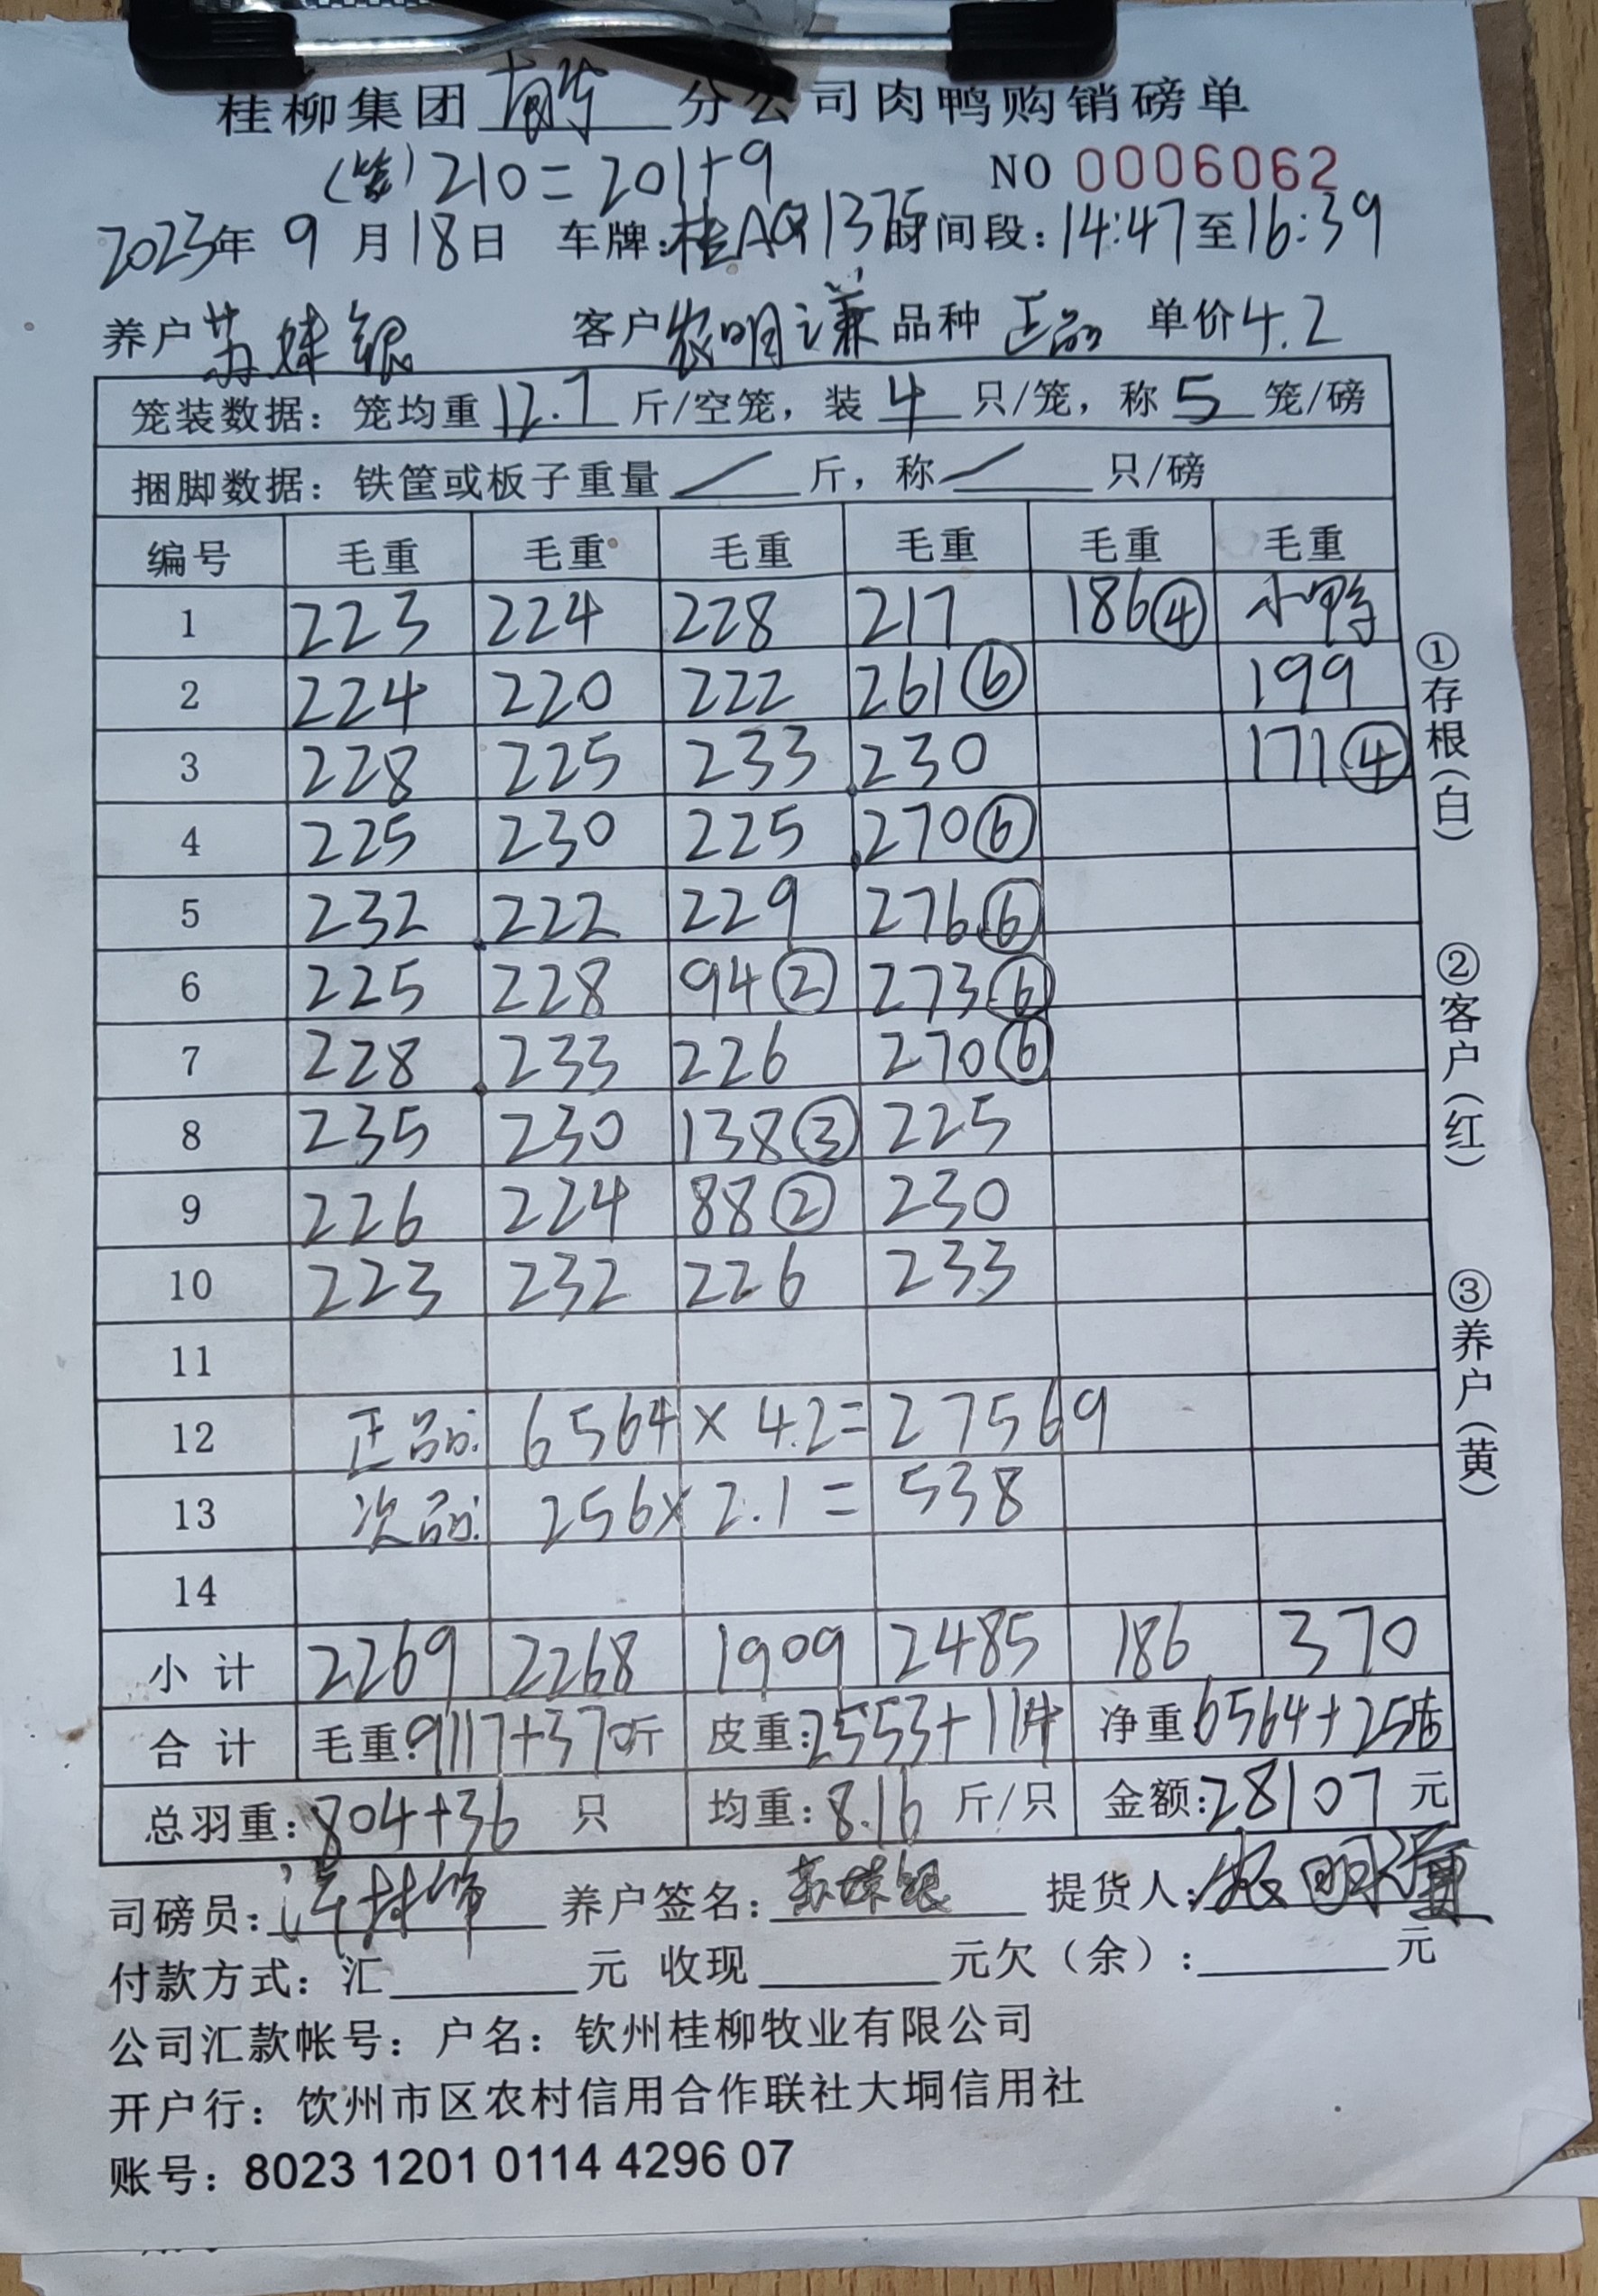 桂柳集团 分公司肉鸭购销磅单
(笼)210=201+9 NO 0006062
2023年 9 月 18日 车牌:桂AQ1375 时间段:14:47至16:39
养户 苏妹银 客户 农明谦 品种 正品 单价 4.2
笼装数据:笼均重 12.7 斤/空笼,装 4 只/笼,称 5 笼/磅
捆脚数据:铁筐或板子重量 / 斤,称 / 只/磅
编号 毛重 毛重 毛重 毛重 毛重 毛重
1 223 224 228 217 186④ 小鸭
2 224 220 222 261⑥ 199
3 228 225 233 230 171④
4 225 230 225 270⑥
5 232 222 229 276⑥
6 225 228 94② 273⑥
7 228 233 226 270⑥
8 235 230 138③ 225
9 226 224 88② 230
10 223 232 226 233
11
12 正品: 6564 × 4.2= 27569
13 次品: 256× 2.1 = 538
14
小 计 2269 2268 1909 2485 186 370
合 计 毛重:9117+370斤 皮重:2553+114斤 净重 6564+256斤
总羽重:804+36 只 均重:8.16 斤/只 金额:28107 元
司磅员: 养户签名:苏妹银 提货人:农明谦
付款方式:汇 元 收现 元欠(余): 元
公司汇款帐号:户名:钦州桂柳牧业有限公司
开户行:饮州市区农村信用合作联社大垌信用社
账号:8023 1201 0114 4296 07
①存根(白)
②客户(红)
③养户(黄)